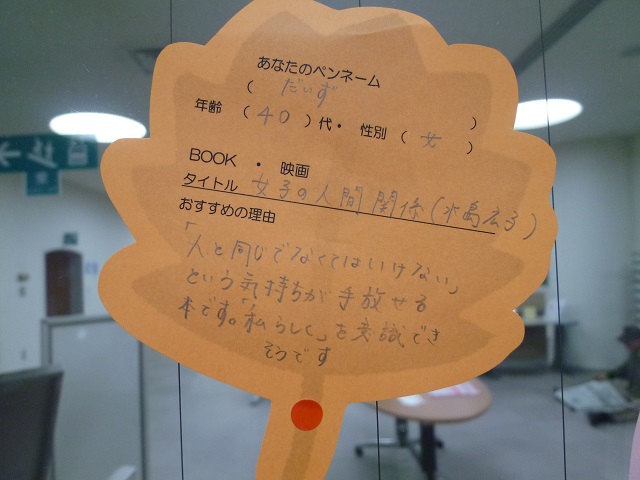 あなたのペンネーム
( だいず )
年齢 (40)代・ 性別 (女)
BOOK ・ 映画
タイトル 女子の人間関係(水島広子)
おすすめの理由
「人と同じでなくてはいけない」
という気持ちが手放せる
本です。「私らしく」を意識でき
そうです